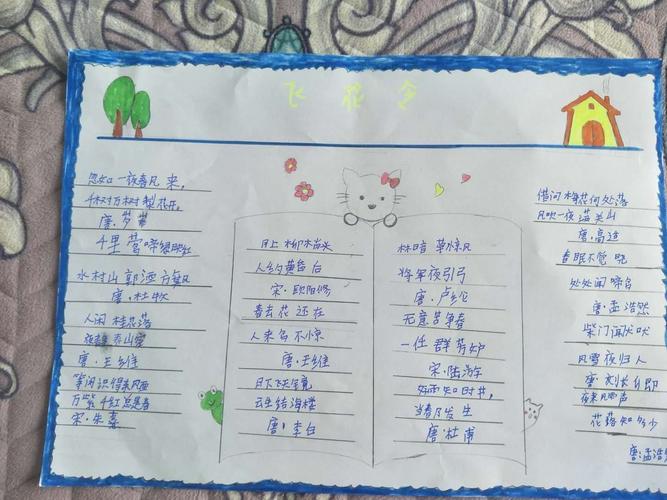 飞花令
忽如一夜春风来,
千树万树梨花开。
唐·岑
千里莺啼绿映红
水村山郭酒旗风
唐·杜牧
人闲桂花落
夜静春山空
唐·王维
等闲识得东风面
万紫千红总是春
宋·朱熹
月上柳梢头
人约黄昏后
宋·欧阳修
春去花还在
人来鸟不惊
唐·王维
月下飞天镜
云生结海楼
唐·李白
林暗草惊风
将军夜引弓
唐·卢纶
无意苦争春
一任群芳妒
宋·陆游
好雨知时节,
当春乃发生
唐·杜甫
借问梅花何处落
风吹一夜满关山
唐·高适
春眠不觉晓
处处闻啼鸟
唐·孟浩然
柴门闻犬吠
风雪夜归人
唐·刘长卿
夜来风雨声
花落知多少
唐·孟浩